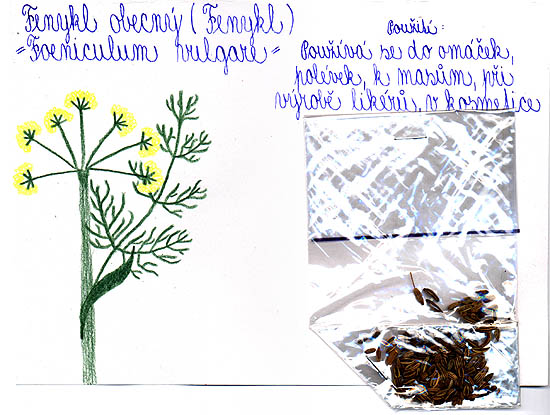 Fenykl obecný (Fenykl)
"Foeniculum vulgare"
Použití:
Používá se do omáček,
polévek, k masům, při
výrobě likérů, v kosmetice